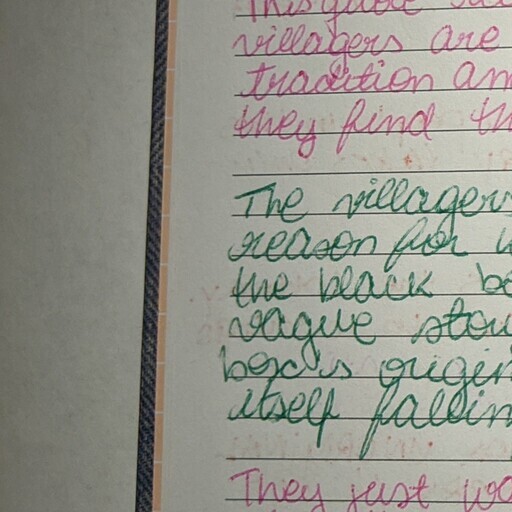 This quote
villagers are
tradition an
they find th
The villagers
reason for
the black bo
vague stou
box's origin
itself fallin
They just wo